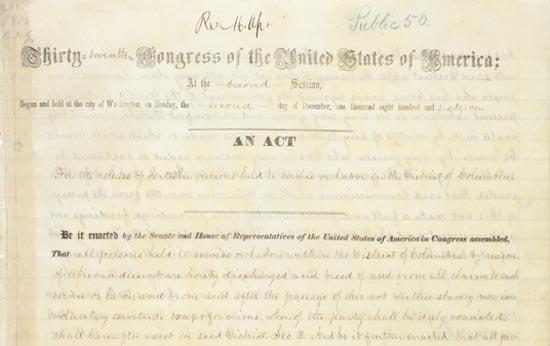 Rec 16. Ap.
Public 50.
Thirty-seventh Congress of the United States of America;
At the second Session,
Begun and held at the city of Washington, on Monday, the second day of December, one thousand eight hundred and sixty-one
AN ACT
For the release of certain persons held to service or labor in the District of Columbia.
Be it enacted by the Senate and House of Representatives of the United States of America in Congress assembled,
That all persons held to service or labor within the District of Columbia by reason
of African descent are hereby discharged and freed of and from all claim to such
service or labor; and from and after the passage of this act neither slavery nor in-
voluntary servitude, except for crime, whereof the party shall be duly convicted
shall hereafter exist in said District. Sec. 2. And be it further enacted. That all per